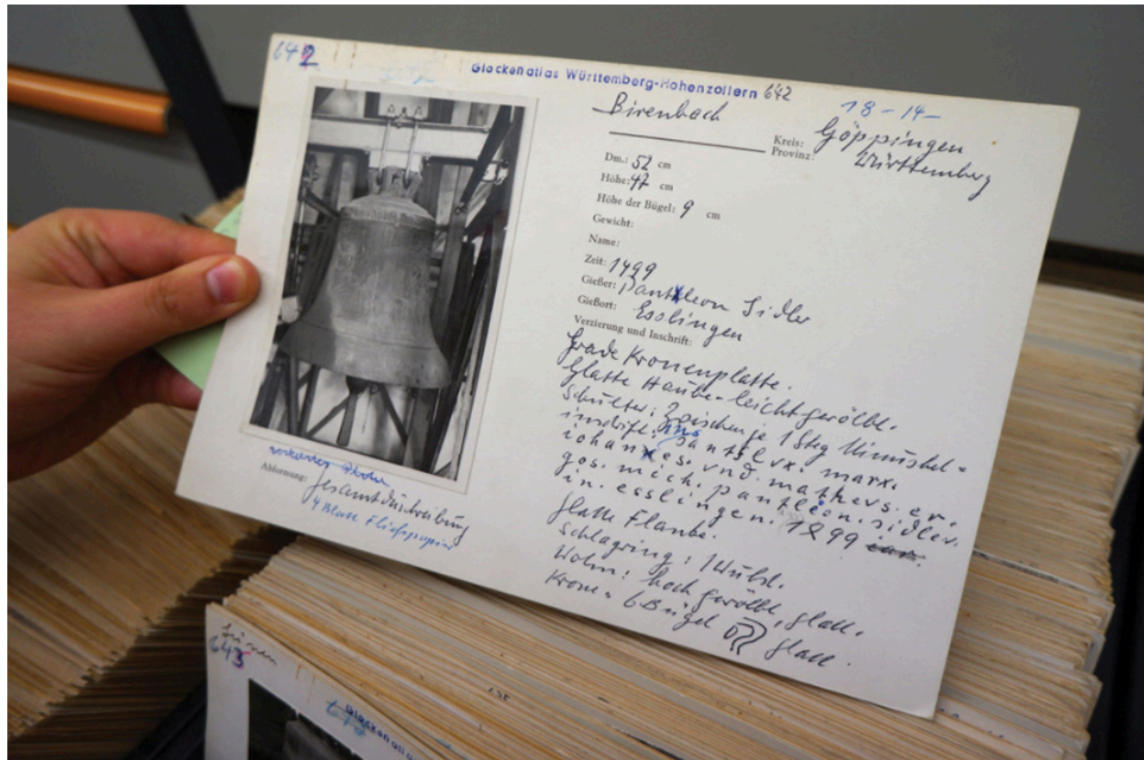 642
Glockenatlas Württemberg-Hohenzollern 642
18-14-
Birenbach
Kreis: Göppingen
Provinz: Württemberg
Dm.: 52 cm
Höhe: 47 cm
Höhe der Bügel: 9 cm
Gewicht:
Name:
Zeit: 1499
Gießer: Pantleon Sidler
Gießort: Esslingen
Verzierung und Inschrift:
Grade Kronenplatte.
Glatte Haube - leicht gewölbt.
Schulter: Zwischen je 1 Steg Minuskel=
inschrift: lux. marx.
iohannes. vnd. mathevs. er.
gos. mich. pantleon. sidler.
in. esslingen. 1499
Glatte Flanke.
Schlagring: 1 Wulst.
Wolm: hoch gewölbt, glatt.
Krone = 6 Bügel glatt.
Abformung: Gesamtabschreibung
4 Blatt Fließpapier
643
Glockenatlas